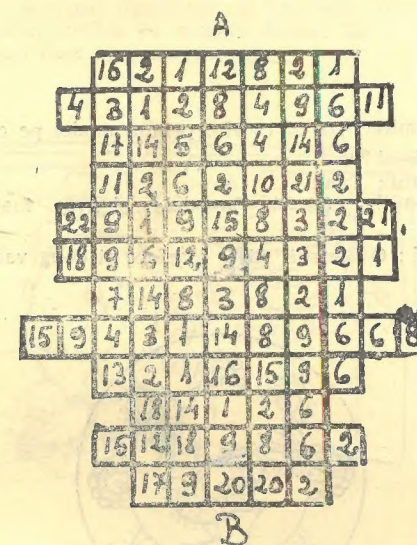 A
16 2 1 12 8 2 1
4 3 1 2 8 4 9 6 11
17 14 5 6 4 14 6
11 2 6 2 10 21 2
22 9 1 9 15 8 3 2 21
18 9 5 12 9 4 3 2 1
7 14 8 3 8 2 1
15 9 4 3 1 14 8 9 6 6 8
13 2 1 16 15 9 6
18 14 1 2 6
15 12 18 9 8 6 2
17 9 20 20 2
B